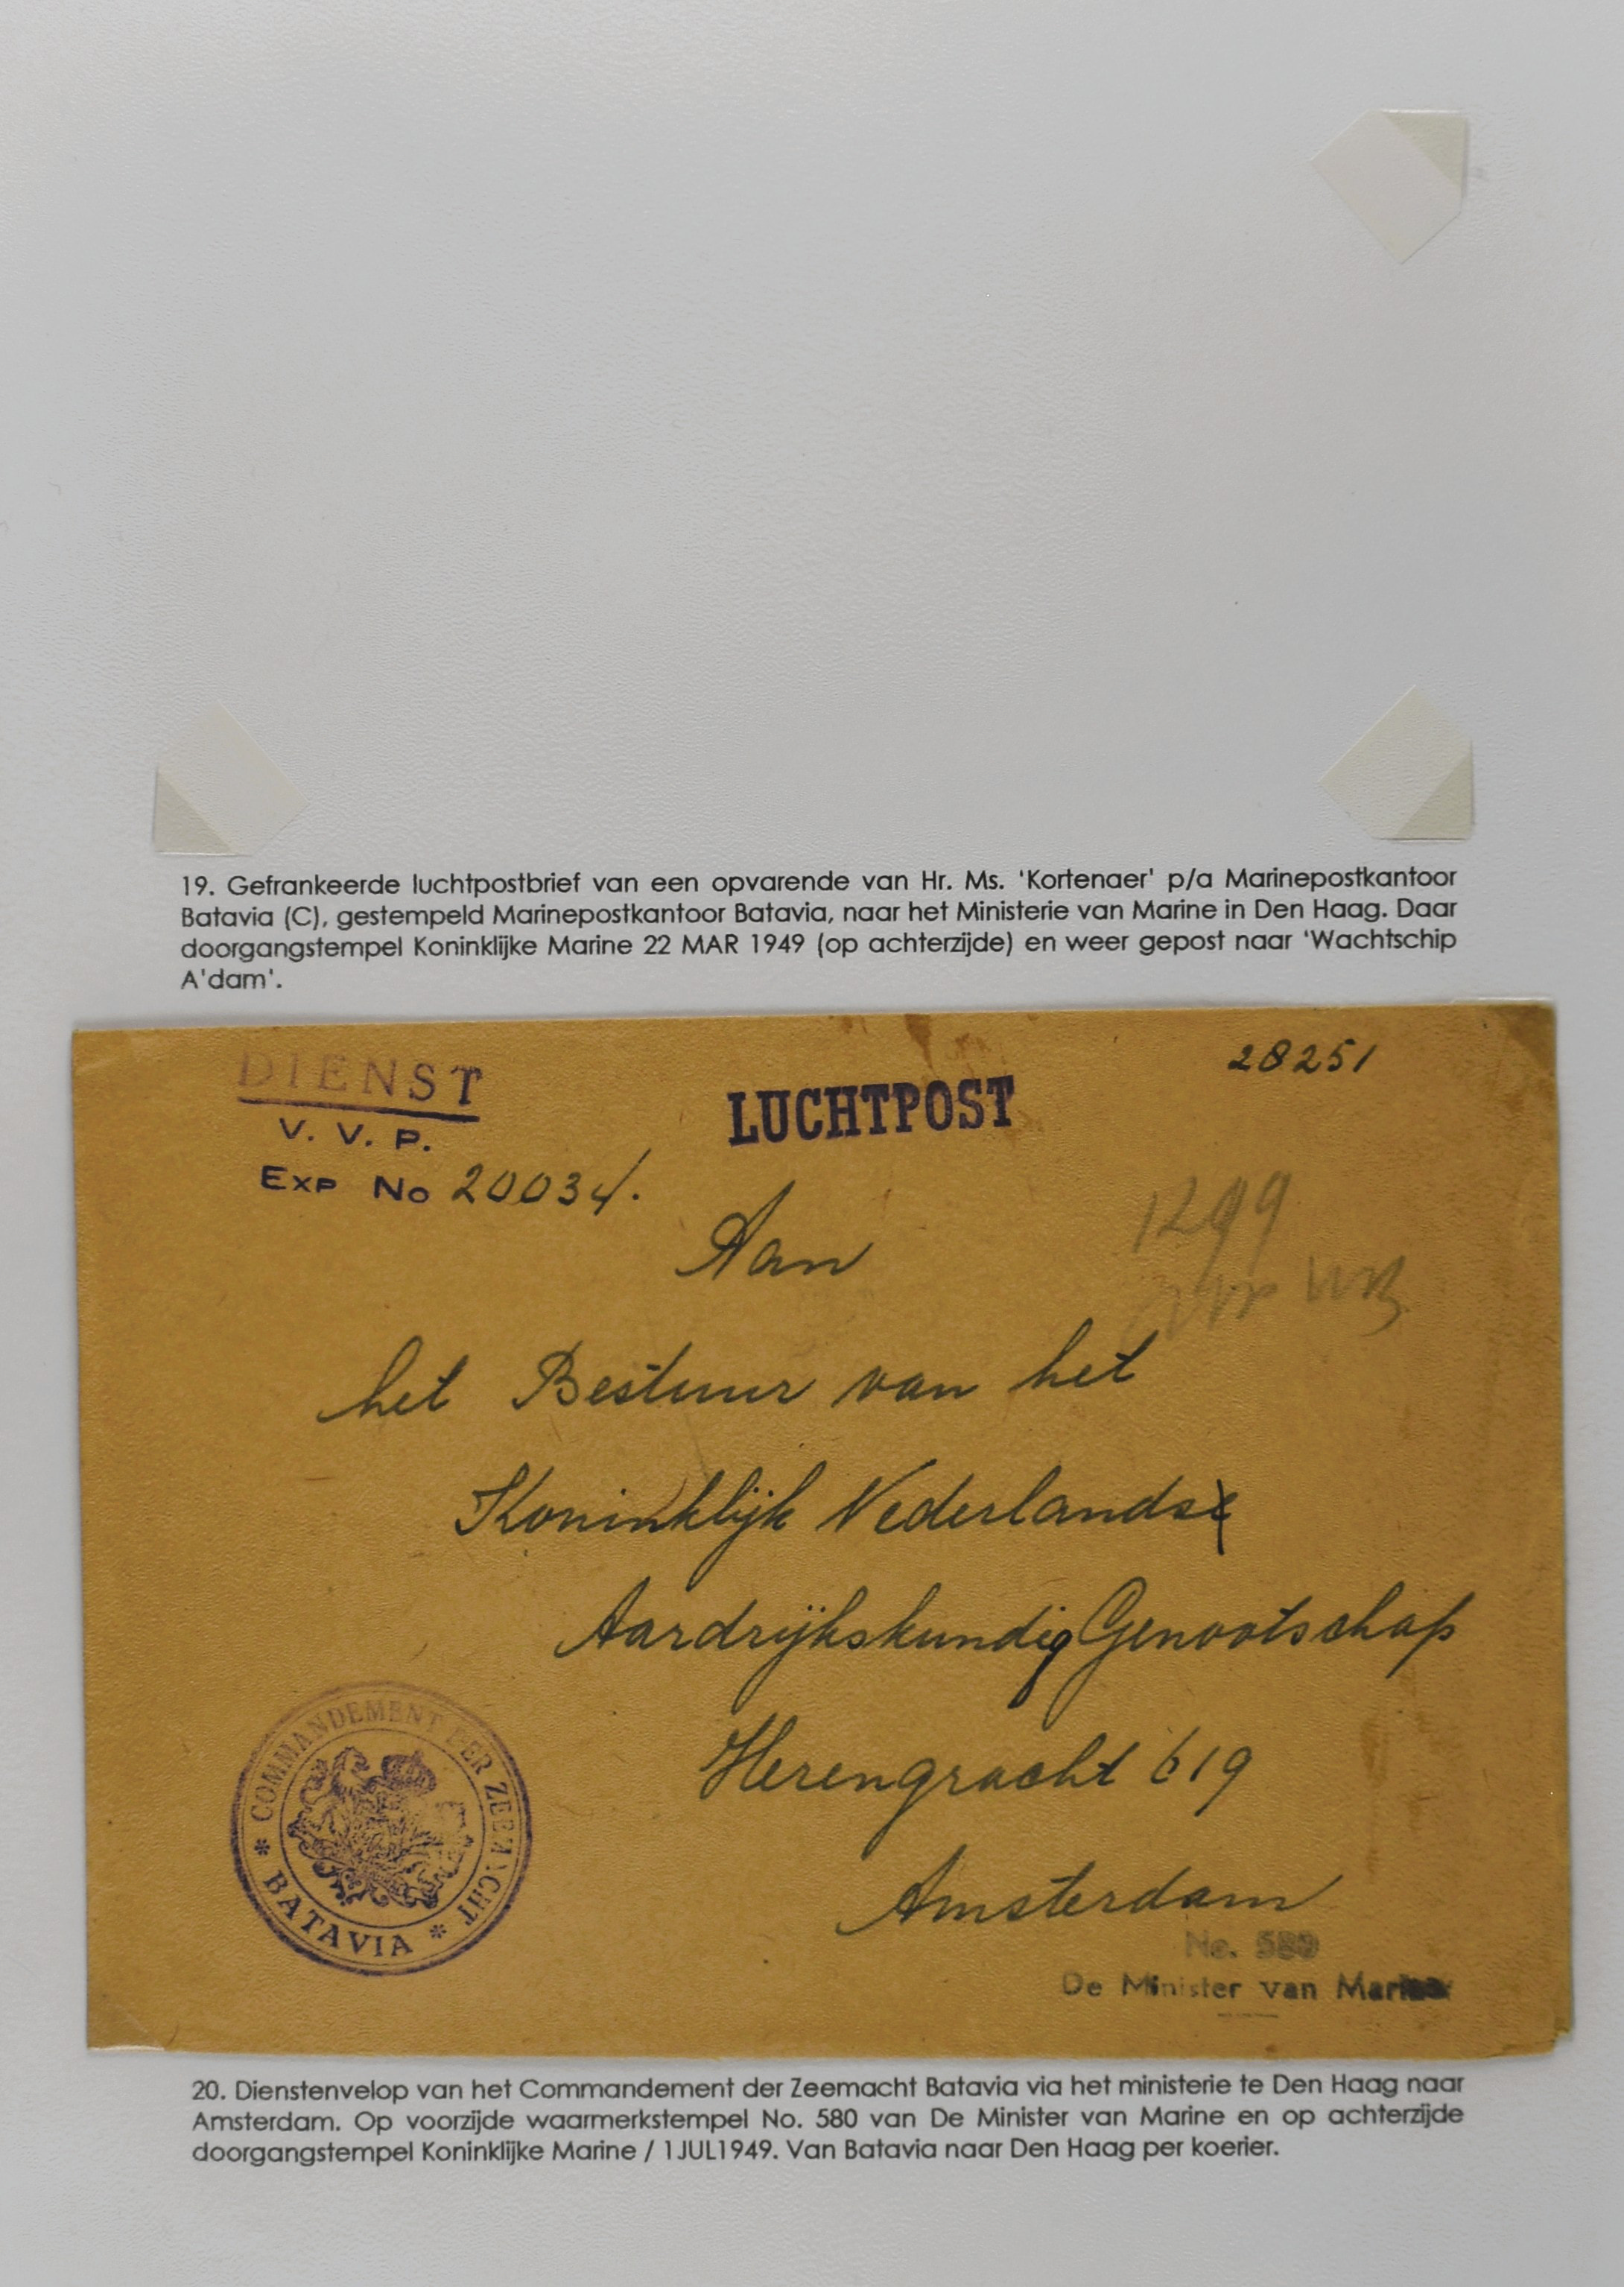 19. Gefrankeerde luchtpostbrief van een opvarende van Hr. Ms. 'Kortenaer' p/a Marinepostkantoor
Batavia (C), gestempeld Marinepostkantoor Batavia, naar het Ministerie van Marine in Den Haag. Daar
doorgangstempel Koninklijke Marine 22 MAR 1949 (op achterzijde) en weer gepost naar 'Wachtschip
A'dam'.
DIENST
V. V. P.
Exp No 20034.
LUCHTPOST
28251
Aan
het Bestuur van het
Koninklijk Nederlands
Aardrijkskundig Genootschap
Herengracht 619
Amsterdam
COMMANDEMENT DER ZEEMACHT
* BATAVIA *
No. 580
De Minister van Marine
20. Dienstenvelop van het Commandement der Zeemacht Batavia via het ministerie te Den Haag naar
Amsterdam. Op voorzijde waarmerkstempel No. 580 van De Minister van Marine en op achterzijde
doorgangstempel Koninklijke Marine / 1JUL1949. Van Batavia naar Den Haag per koerier.